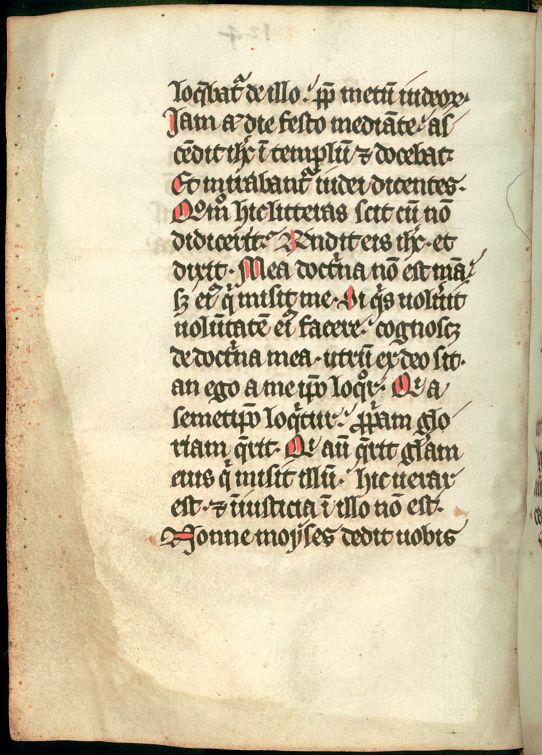 loq̄bat᷑ de illo. ꝓp̄ metū iudeoꝝ.
Jam aūt die festo mediāte. as
cēdit ihc̄ ī templū ⁊ docebat.
Et mirabant᷑ iudei dicentes.
Quomᵒ hic litteras scit cū nō
didicerit. Rn̄dit eis ihc̄. et
dixit. Mea doctⁱna nō est mea
sꝫ eiꝰ qͥ misit me. Si qͥs uolūit
uolūtatē eiꝰ facere. cognoscꝫ
de doctⁱna mea. utrū ex deo sit.
an ego a me ip̄o loqͦr. Qui a
semetip̄o loqͥtur. ꝓpͥam glo
riam q̄rit. Qui aūt q̄rit gl̄am
eius qͥ misit illū. hic uerax
est. ⁊ iniusticia ī illo nō est.
Nonne moyses dedit uobis